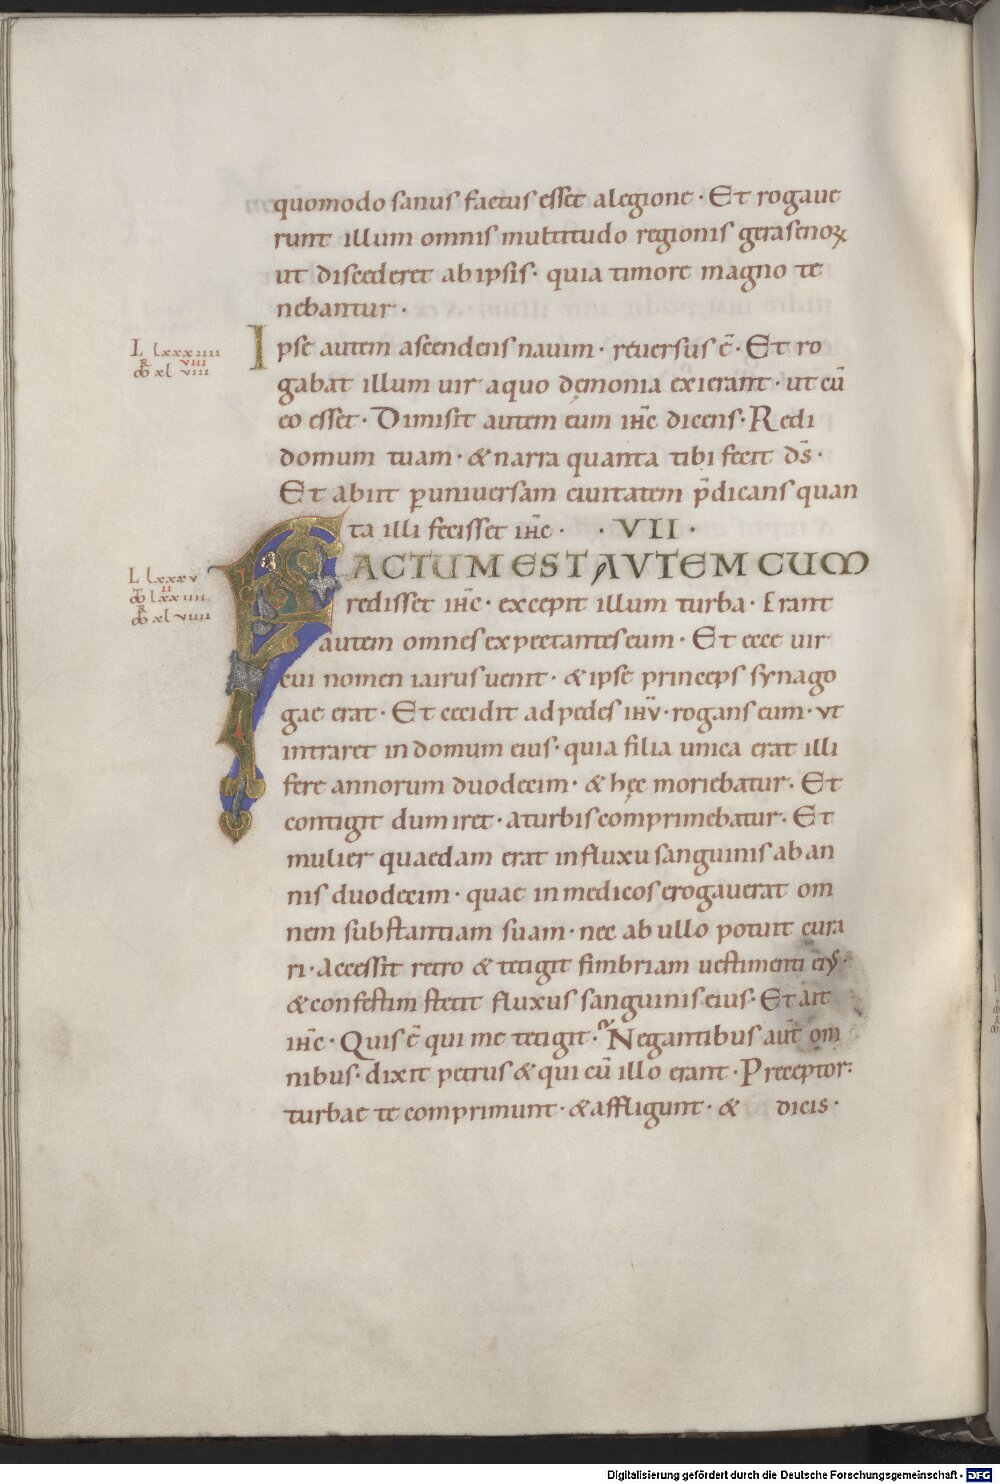 quomodo sanus factus esset alegione · Et rogaue
runt illum omnis multitudo regionis gerasenoꝝ
ut discederet ab ipsis · quia timore magno te
nebantur ·
L lxxxiiii
viii
R
ꝏ xl viiii
Ipse autem ascendens nauim · reuersus ē · Et ro
gabat illum uir aquo dęmonia exierant · ut cū
eo esset · Dimisit autem eum ihc̄ dicens · Redi
domum tuam · & narra quanta tibi fecit dn̄s ·
Et abiit ꝑuniuersam ciuitatem p̄dicans quan
ta illi fecisset ihc̄ · · VII ·
L lxxxv
II
ꝏ lxxiiii
R
ꝏ xl viiii
FACTUM EST AVTEM CUM
redisset ihc̄ · excepit illum turba · Erant
autem omnes expectantes eum · Et ecce uir
cui nomen iairus uenit · & ipse princeps synago
gae erat · Et cecidit ad pedes ihv̄ · rogans eum · vt
intraret in domum eius · quia filia unica erat illi
fere annorum duodecim · & hęc moriebatur · Et
contigit dum iret · aturbis comprimebatur · Et
mulier quaedam erat in fluxu sanguinis ab an
nis duodecim · quae in medicos erogauerat om
nem substantiam suam · nec ab ullo potuit cura
ri · Accessit retro & tetigit fimbriam uestimenti eiꝰ ·
& confestim stetit fluxus sanguinis eius · Et ait
ihc̄ · Quis ē qui me tetigit · Negantibus aūt om
nibus · dixit petrus & qui cū illo erant · Preceptor ·
turbae te comprimunt · & affligunt · & dicis ·
Digitalisierung gefördert durch die Deutsche Forschungsgemeinschaft - DFG